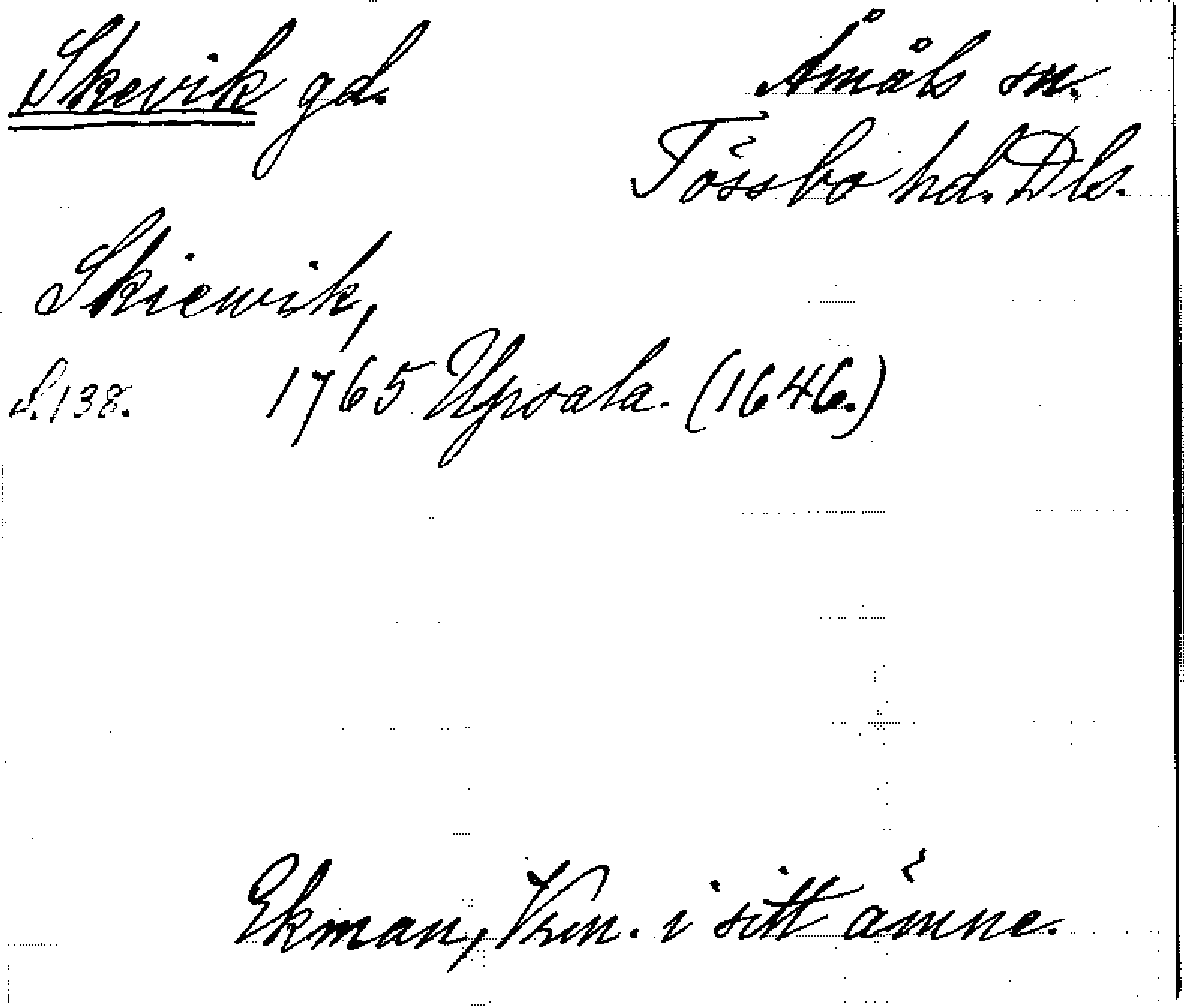 Skevik gd.
Åmåls sn.
Tössbo hd. Dls.
Skiewik,
s. 138. 1765 Upsala. (1646.)
Ekman, Vsen. i sitt ämne.